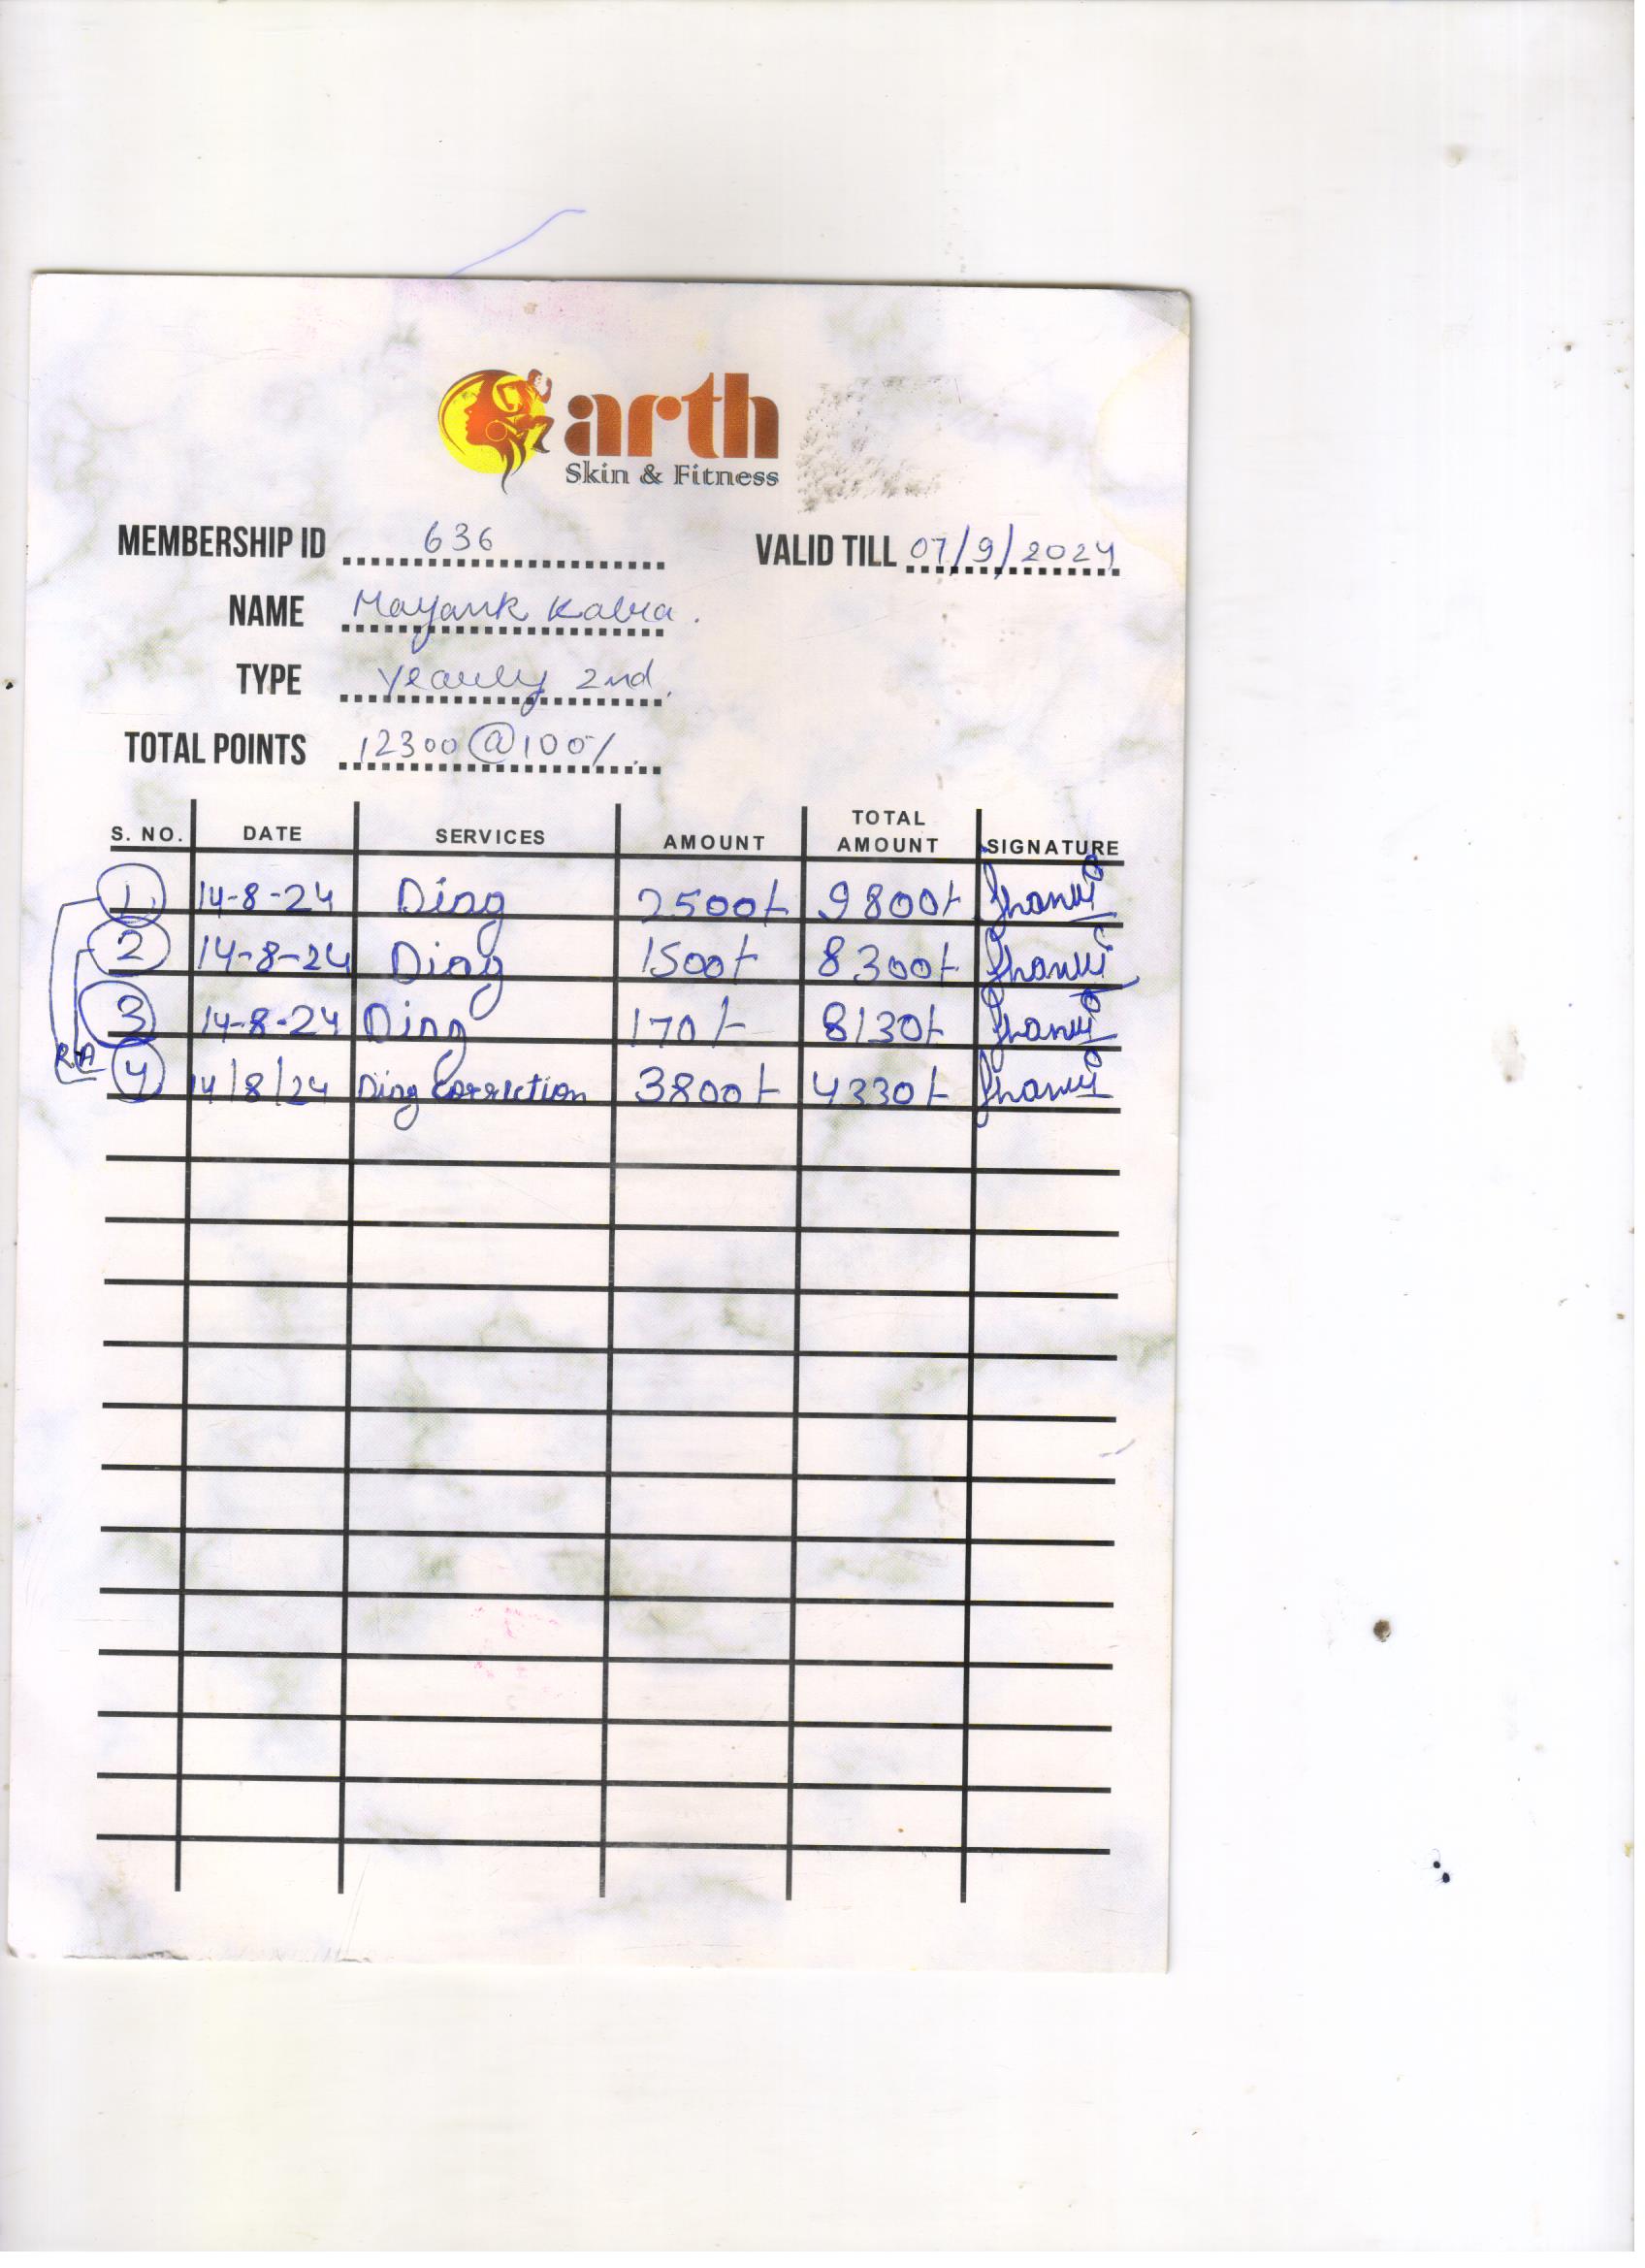 arth
Skin & Fitness
MEMBERSHIP ID 636 VALID TILL 07/9/2024
NAME Mayank Kabra.
TYPE Yearly 2nd.
TOTAL POINTS 12300@100%
S. NO. DATE SERVICES AMOUNT TOTAL AMOUNT SIGNATURE
1. 14-8-24 Diag 2500/- 9800/- Jhanvi
2 14-8-24 Diag 1500/- 8300/- Jhanvi
3 14-8-24 Diag 170/- 8130/- Jhanvi
R.A 4 14/8/24 Diag Correction 3800/- 4330/- Jhanvi